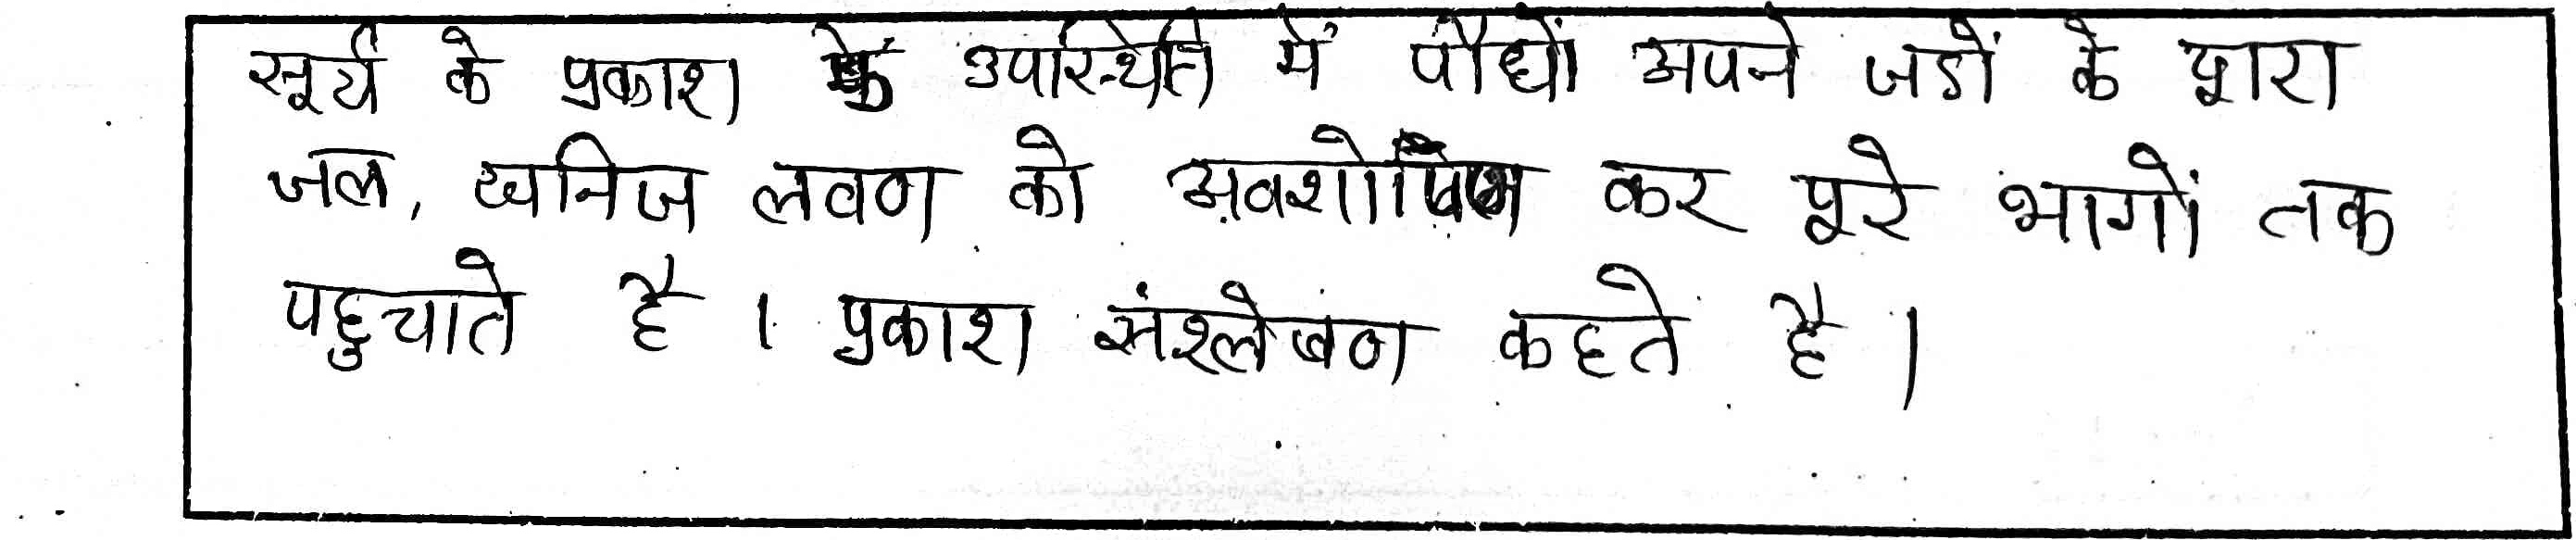 सूर्य के प्रकाश के उपस्थिति में पौधों अपने जडों के द्वारा
जल, खनिज लवण को अवशोषित कर पूरे भागों तक
पहुचाते है । प्रकाश संश्लेषण कहते है ।